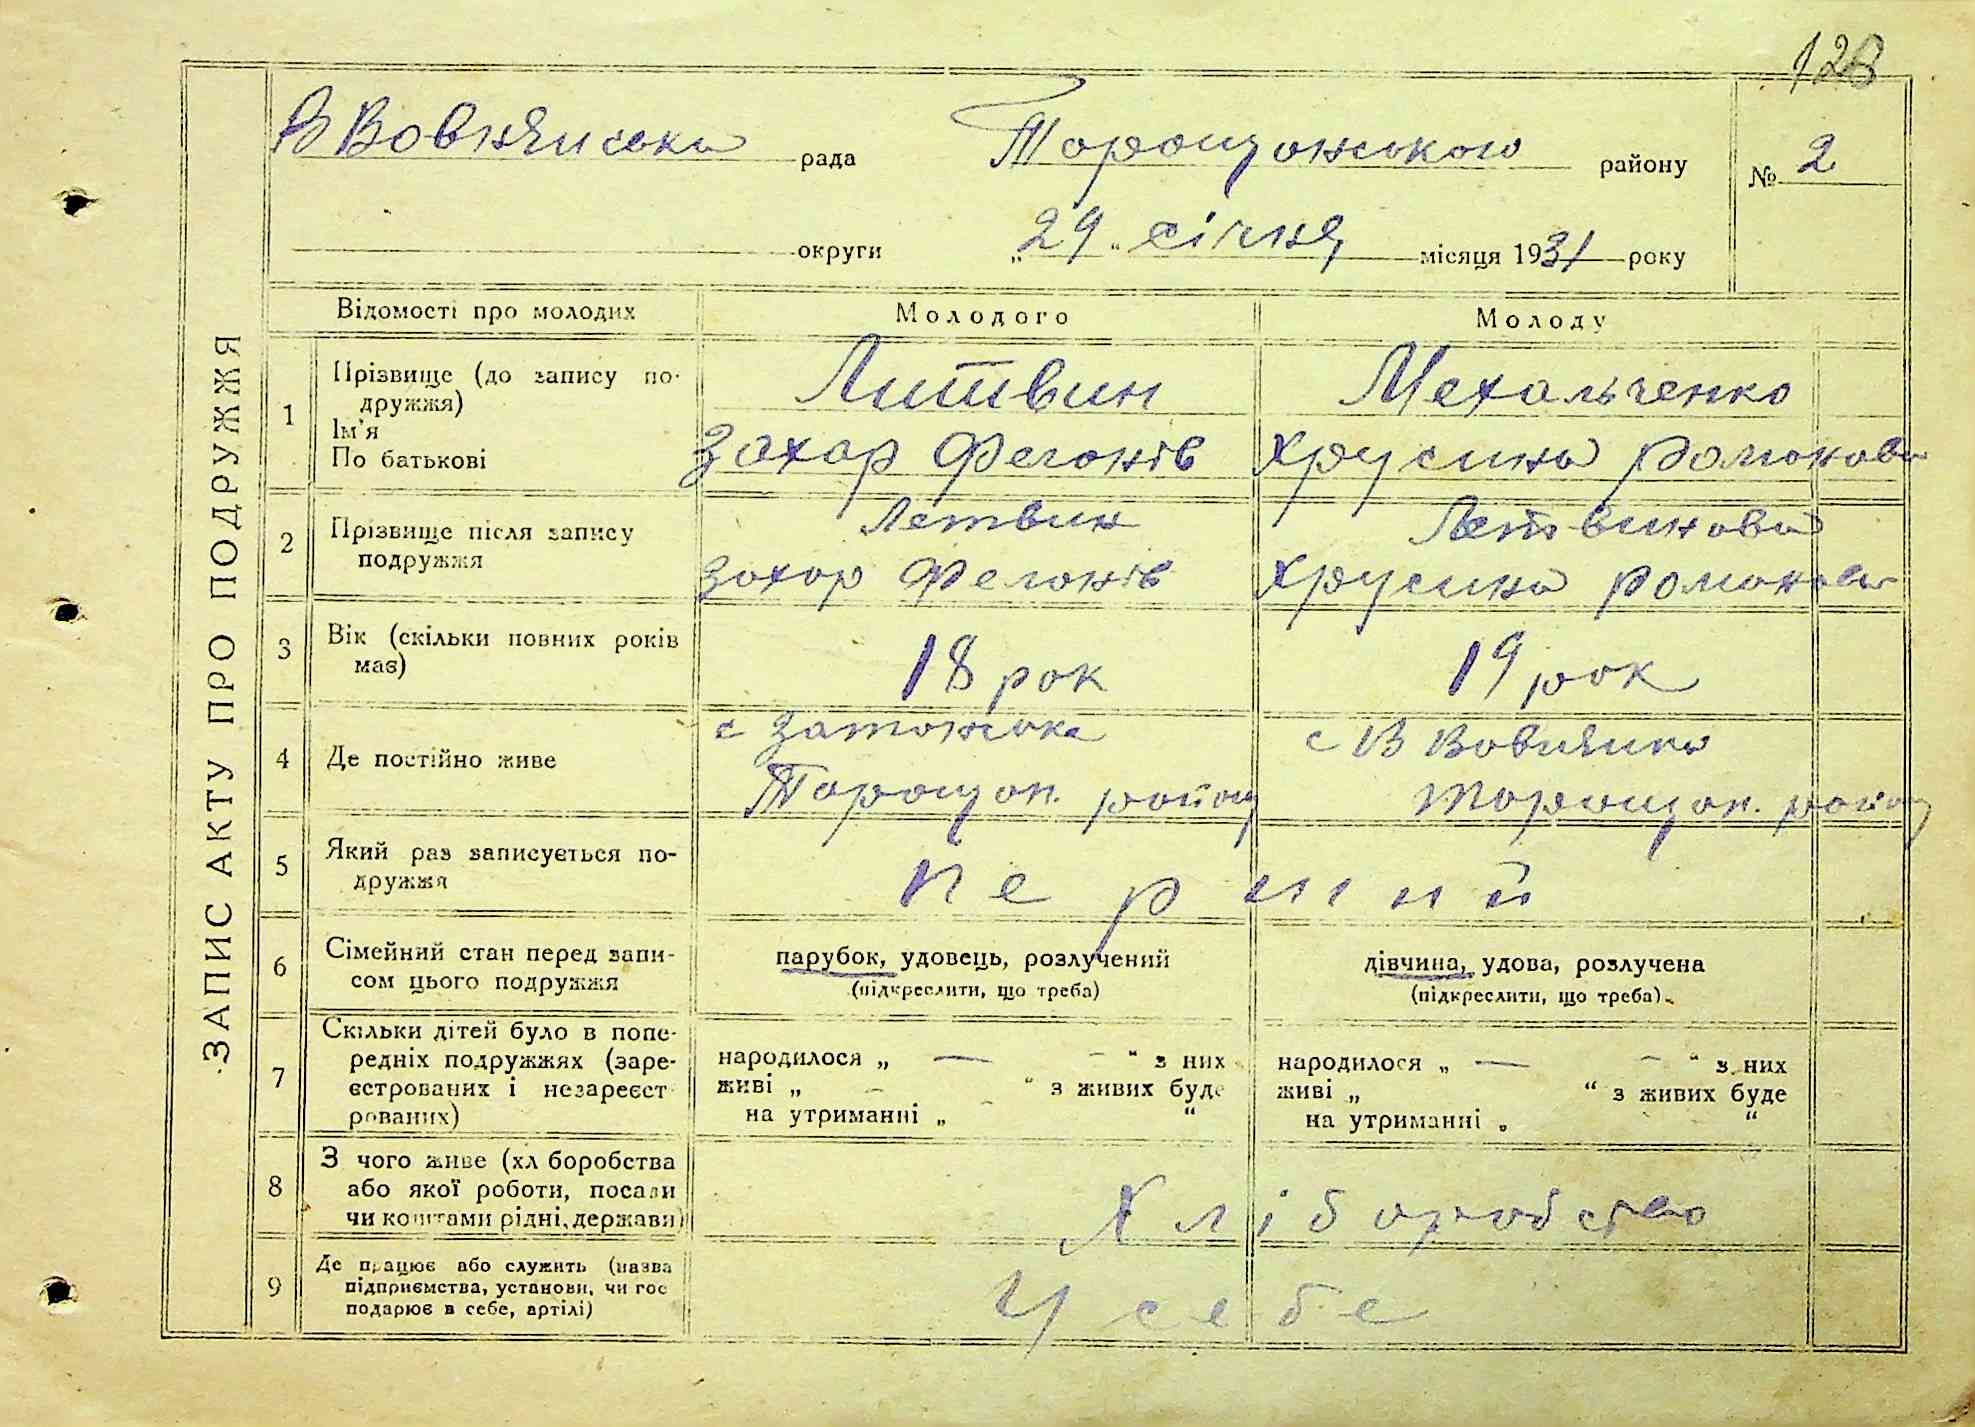 128
В Вовнянська рада Таращанського району № 2
округи „29" січня місяця 1931 року
ЗАПИС АКТУ ПРО ПОДРУЖЖЯ
Відомості про молодих Молодого Молоду
1 Прізвище (до запису по-
дружжя)
Ім'я
По батькові
Литвин
Захар Феганів
Мехальченко
Хрусина Романова
2 Прізвище після запису
подружжя
Летвин
Захар Феганів
Летвинова
Хрусина Романова
3 Вік (скільки повних років
має)
18 рок
19 рок
4 Де постійно живе
с
Таращан. району
с В
Таращан. району
5 Який раз записується по-
дружжя
Перший
6 Сімейний стан перед запи-
сом цього подружжя
парубок, удовець, розлучений
(підкреслити, що треба)
дівчина, удова, розлучена
(підкреслити, що треба)
7 Скільки дітей було в попе-
редніх подружжях (заре-
єстрованих і незареєст
рованих)
народилося „ — — " з них
живі „ — " з живих буде
на утриманні „ "
народилося „ — — " з них
живі „ " з живих буде
на утриманні „ "
8 З чого живе (хл боробства
або якої роботи, посади
чи коштами рідні, держави)
Хліборобство
9 Де працює або служить (назва
підприємства, установи, чи гос
подарює в себе, артілі)
У себе